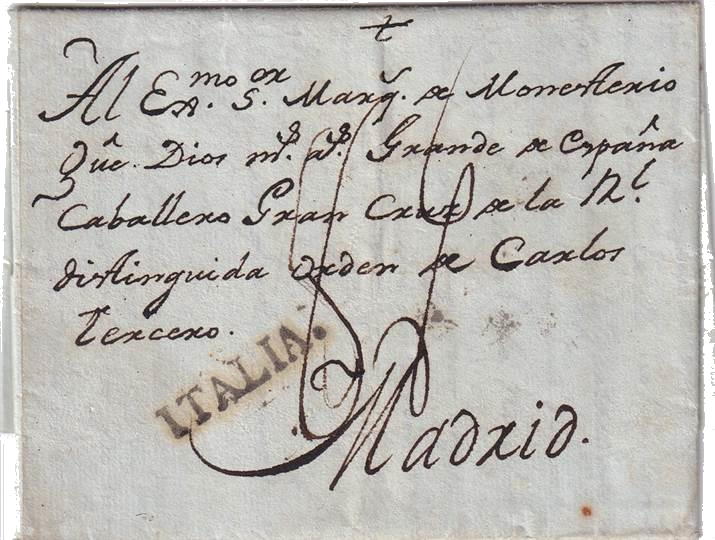 Al Exmo. Sor. Marqs. de Monesterio
Que Dios ms. as. Grande de España
Caballero Gran Cruz de la Rl.
distinguida orden de Carlos
tercero.
ITALIA.
Madrid.